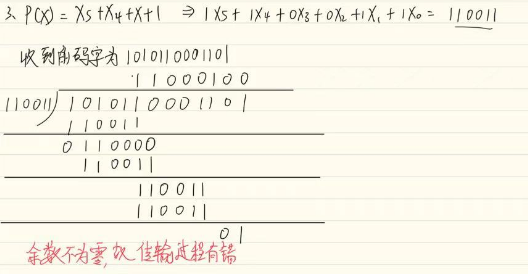 3、P(X) = X5 + X4 + X + 1 ⇒ 1X5 + 1X4 + 0X3 + 0X2 + 1X1 + 1X0 = 110011
收到的码字为 1010110001101
11000100
110011)1010110001101
110011
0110000
110011
110011
110011
01
余数不为零,故传输过程有错